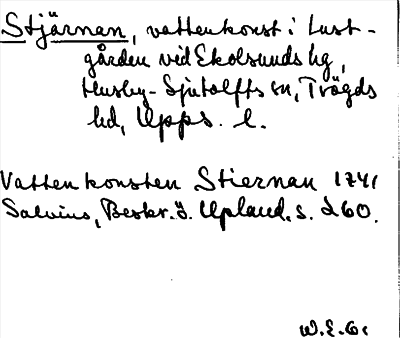 Stjärnan, vattenkonst i Lust-
gården vid Ekolsunds hg,
Husby-Sjutolfts sn, Trögds
hd, Upps. l.
Vattenkonsten Stiernan 1741
Salvius, Beskr. ö. Upland, s. 260.
W.E.G.